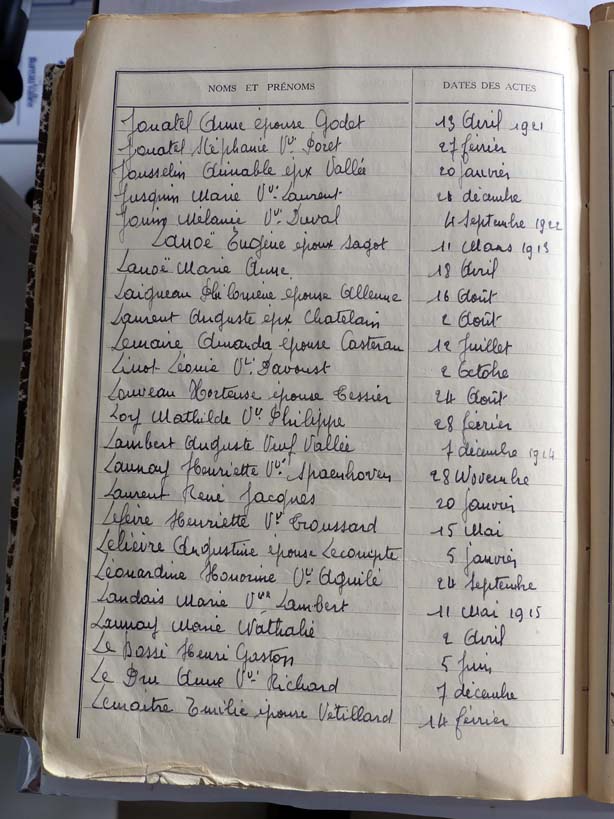 NOMS ET PRÉNOMS DATES DES ACTES
Jouatel Anne épouse Godet 13 Avril 1921
Jouatel Stéphanie Vve Poret 27 février
Jousselin Aimable épx Vallée 20 janvier
Jusquin Marie Vve Laurent 26 décembre
Jouin Mélanie Vve Duval 4 Septembre 1922
Lanoë Eugène époux Sagot 11 Mars 1913
Lanoë Marie Anne 18 Avril
Laigneau Philomène épouse Allenne 16 Août
Laurent Auguste épx Chatelain 2 Août
Lemaire Amanda épouse Casteran 12 Juillet
Linot Léonie Vve Davoust 2 Octobre
Louveau Hortense épouse Tessier 24 Août
Loy Mathilde Vve Philippe 28 février
Lambert Auguste Veuf Vallée 7 décembre 1914
Launay Henriette Vve Spaenhoven 28 Novembre
Laurent René Jacques 20 janvier
Lefèvre Henriette Vve Troussard 15 Mai
Lelièvre Augustine épouse Lecompte 5 janvier
Léonardine Honorine Vve Aguilé 24 Septembre
Landais Marie Vve Lambert 11 Mai 1915
Launay Marie Nathalie 2 Avril
Le Bossé Henri Gaston 5 Juin
Le Bru Anne Vve Richard 7 décembre
Lemaitre Emilie épouse Vétillard 14 février